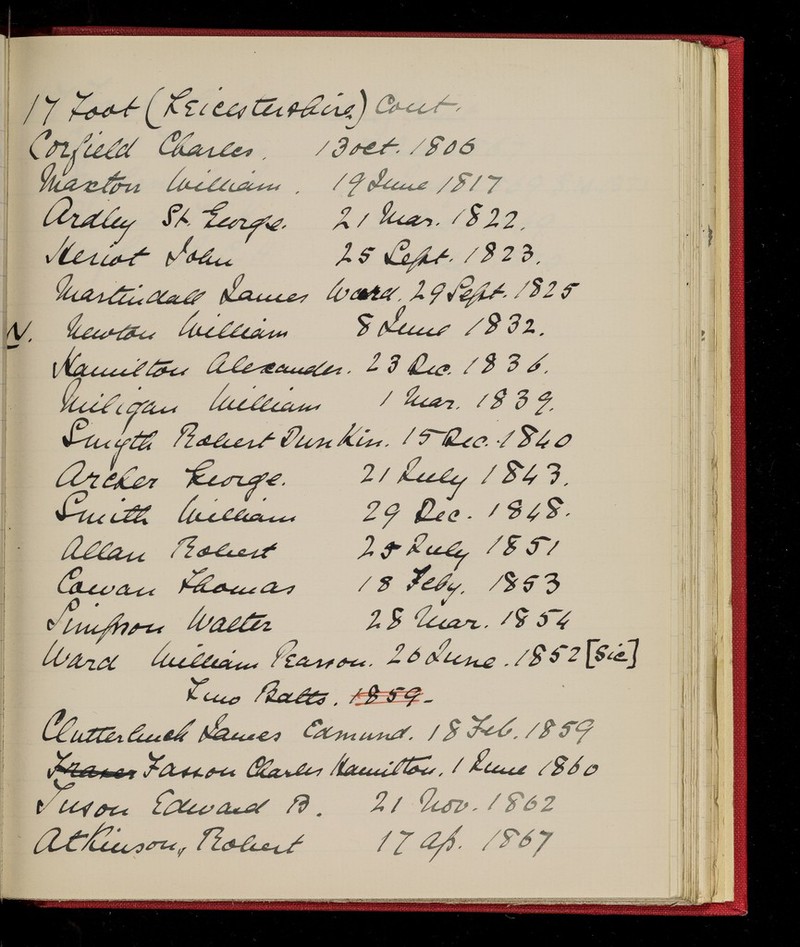 17 Foot (Leicestershire) Cont.
Corfield Charles. 13 oct. 1806
Maxton William. 19 June 1817
Ardley St. George. 21 Mar. 1822.
Heriot John 25 Sept. 1823.
Martindale James Ward. 29 Sept. 1825
N. Newton William 8 June 1832.
Hamilton Alexander. 23 Dec. 1836.
Miligan William 1 Mar. 1839.
Smyth Robert DunKin. 15 Dec. 1840
Archer George. 21 July 1843.
Smith William 29 Dec. 1848.
Allan Robert 25 July 1851
Cowan Thomas 18 Feby. 1853
Simpson Walter 28 Mar. 1854
Ward William Pearson. 26 June. 1852 [Sic]
Two Batts. 1859.
Clutterbuck James Edmund. 18 Feb. 1859
Fraser Fasson Charles Hamilton. 1 June 1860
Tuson Edward B. 21 Nov. 1862
Atkinson, Robert 17 Ap. 1867